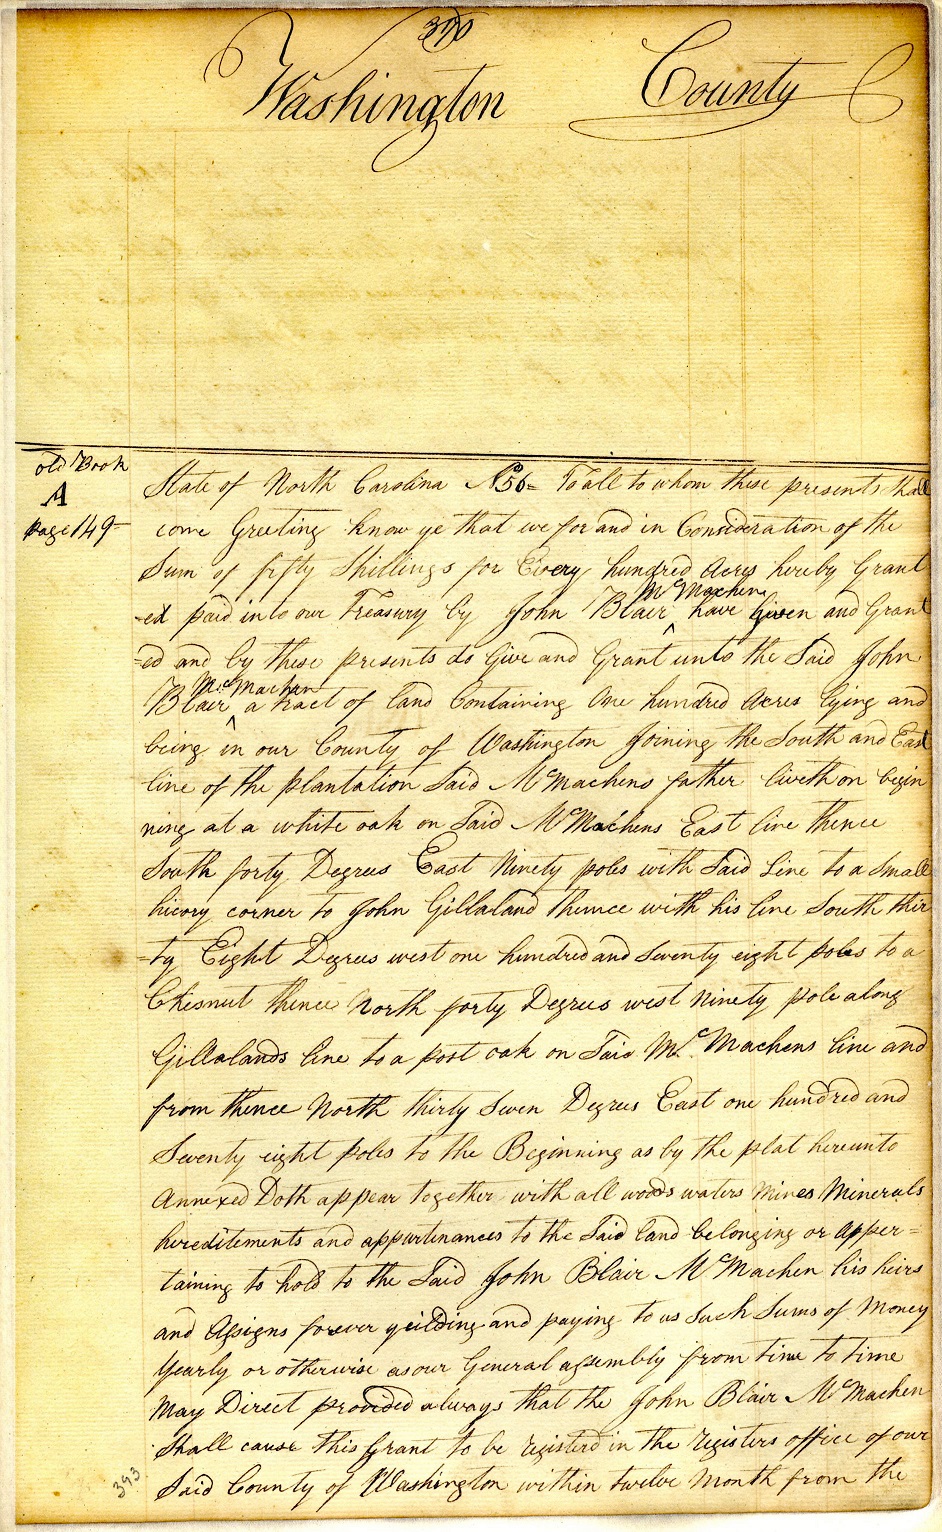 390
Washington County
old Book
A
page 149
State of North Carolina No 56= To all to whom these presents Shall
come Greeting know ye that we for and in Consideration of the
Sum of fifty Shillings for Every hundred Acres hereby Grant
McMachen
-ed paid into our Treasury by John Blair ^ have Given and Grant
=ed and by these presents do Give and Grant unto the Said John
McMachan
Blair ^ a tract of land Containing One hundred Acres lying and
being in our County of Washington Joining the South and East
line of the plantation Said McMachens father liveth on begin
ning at a white oak on Said McMachens East line thence
South forty Degrees East Ninety poles with Said Line to a Small
hicory corner to John Gillaland thence with his line South thir
=ty Eight Degrees west one hundred and Seventy eight poles to a
Chesnut thence North forty Degrees west Ninety pole along
Gillalands line to a post oak on Said Mc Machens line and
from thence North thirty Seven Degrees East one hundred and
Seventy eight poles to the Beginning as by the plat hereunto
Annexed Doth appear together with all woods waters Mines Minerals
hereditements and appurtinances to the Said land belonging or Apper=
taining to hold to the Said John Blair McMachen his heirs
and Assigns forever yeilding and paying to us Such Sums of Money
yearly or otherwise as our General assembly from time to time
May Direct provided always that the John Blair McMachen
Shall cause this Grant to be registerd in the registers office of our
Said County of Washington within twelve Month from the
393